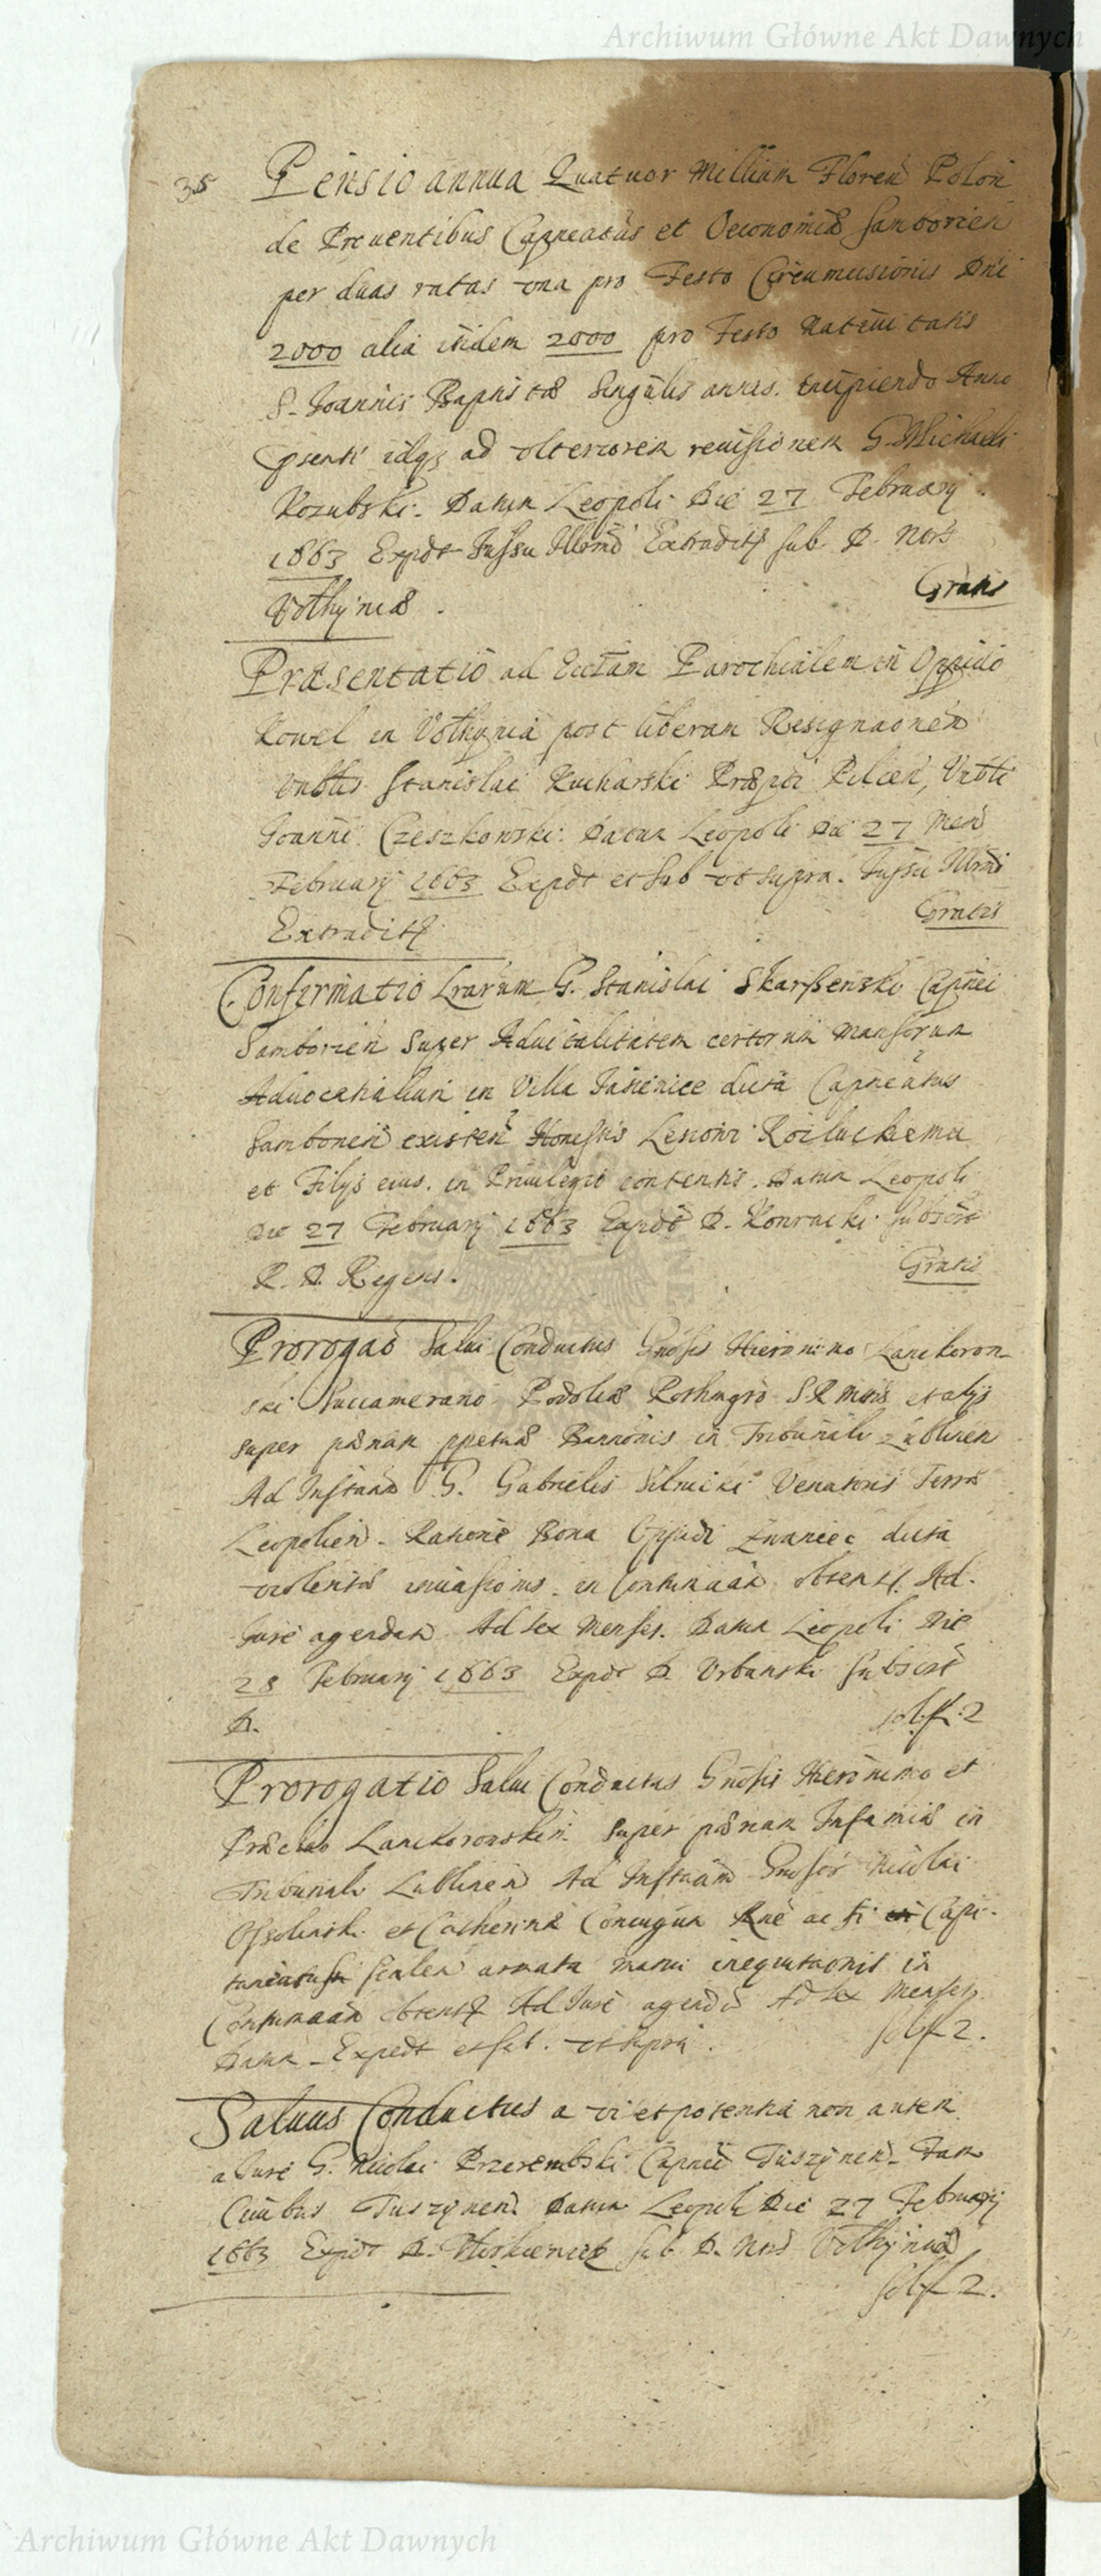 Archiwum Główne Akt Dawnych
35
Pensio annua Quatuor Millium Floren Polon
de Prouentibus Capneatus et Oeconomiæ Samborien
per duas ratas una pro Festo Circumcisionis Dni
2000 alia itidem 2000 pro Festo Natiuitatis
S. Joannis Baptistæ singulis annis. incipiendo Anno
pnti idqz ad ulteriorem reuisionem G. Michaeli
Kozubski. Datum Leopoli Die 27 Februarij
1663 Expdt Jussu Illrmi Extradit sub D. Nors
Volhyniæ. Gratis
Præsentatio ad Eccłam Parochialem in Oppido
Kowel in Volhynia post liberam Resignaonem
Vnblis Stanislai Kucharski Præpti Pilcen, Vnbli
Joanni Czeszkowski. Datum Leopoli Die 27 Men
Februarij 1663 Expdt et sub ut supra. Jussu Illrmi
Extradit Gratis
Confirmatio Lrarum G. Stanislai Skarszewski Capnei
Samborien super Aduitalitatem certorum mansorum
Aduocatialium in Villa Jasienice dicta Capneatus
Samborien existen Honestis Lesioni Koiluckiemu
et Filijs eius in Priuilegio contentis. Datum Leopoli
Die 27 Februarij 1663 Expdt D. Konracki subscr
R. D. Regens. Gratis
Prorogao Salui Conductus Gnosis Hieronimo Lanckoron-
ski Succamerario Podoliæ Rothmgro S R Mttis et alijs
super pænam ppetuæ Bannionis in Tribunali Lublinen
Ad Instan G. Gabrielis Silnicki Venatoris Terræ
Leopolien. Ratione Bona Oppidi Zwaniec dicta
violentæ inuasionis in Contumaam obtent. Ad
Jure agendum Ad sex Menses. Datum Leopoli Die
28 Februarij 1663 Expdt D. Urbanski subscrt
D. sol. f. 2
Prorogatio Salui Conductus Gnosis Hieronimo et
Præclao Lanckoronskim super pænam Infamiæ in
Tribunali Lublinen Ad Instaam Gnosor Nicolai
Ossolinski et Catherinæ Coniugum Rne ac si Capi-
armata manu inequitaonis in
Contumaam obtent Ad Jure agendu Ad sex Menses
Datum Expedt et sub. ut supra. sol f 2.
Saluus Conductus a vi et potentia non autem
a Jure G. Nicolai Przerembski Capnei Tuszynen. Fam
Ciuibus Tuszynen. Datum Leopoli Die 27 Februarij
1663 Expdt D. sub D. Nors Volhyniæ
sol f 2.
Archiwum Główne Akt Dawnych